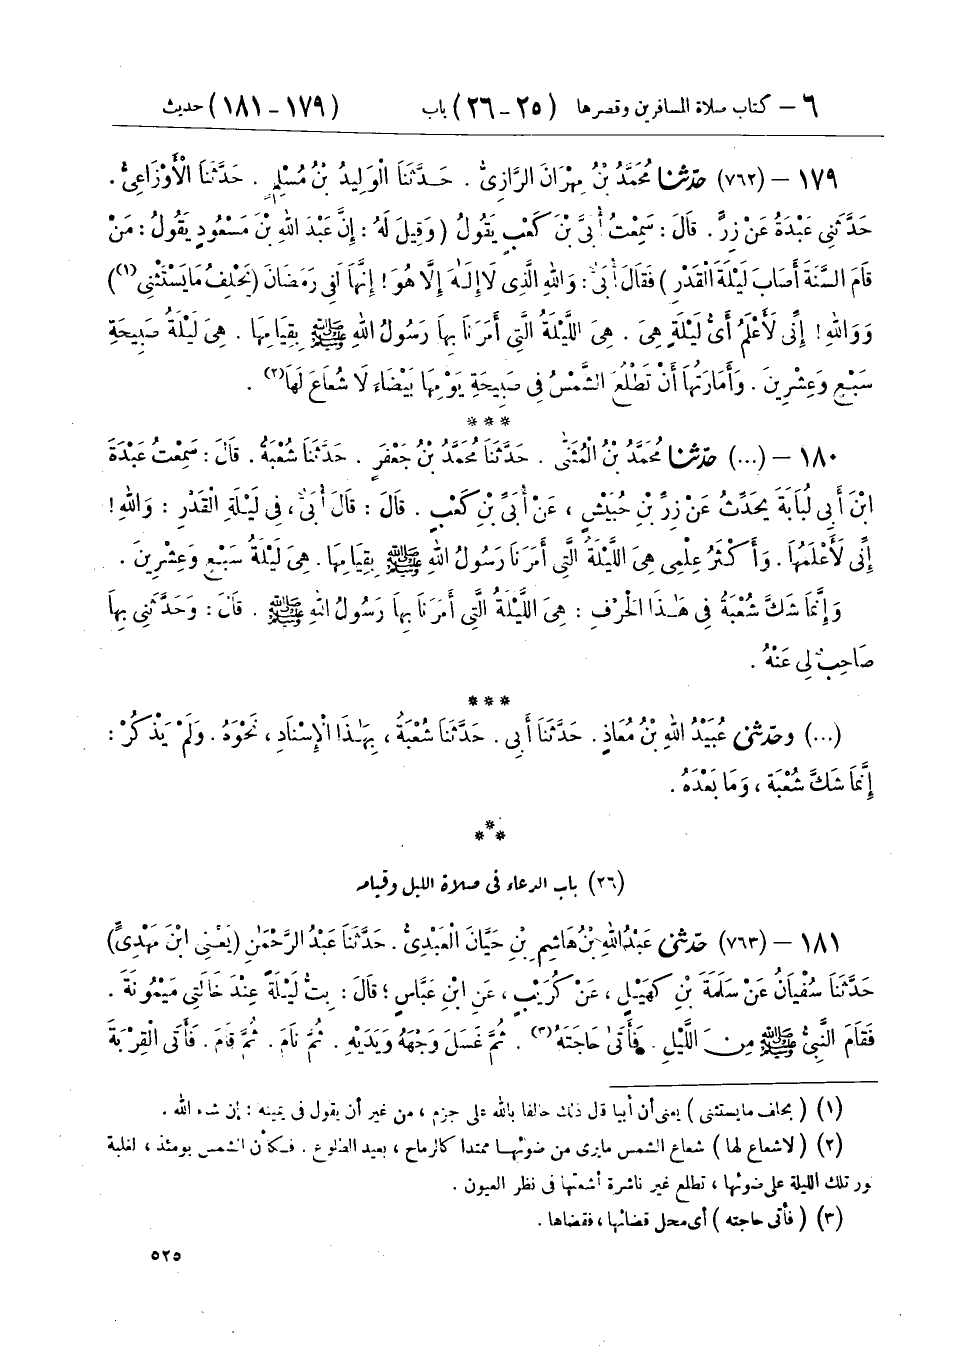 ٦ – كتاب صلاة المسافرين وقصرها (٢٥ - ٢٦) باب (١٧٩ - ١٨١) حديث
١٧٩ – (٧٦٢) حدّثنا مُحَمَّدُ بْنُ مِهْرَانَ الرَّازِىُّ . حَدَّثَنَا الْوَلِيدُ بْنُ مُسْلِمٍ . حَدَّثَنَا الْأَوْزَاعِىُّ .
حَدَّثَنِى عَبْدَةُ عَنْ زِرٍّ . قَالَ : سَمِعْتُ أُبَىَّ بْنَ كَعْبٍ يَقُولُ ( وَقِيلَ لَهُ : إِنَّ عَبْدَ اللهِ بْنَ مَسْعُودٍ يَقُولُ : مَنْ
قَامَ السَّنَةَ أَصَابَ لَيْلَةَ الْقَدْرِ ) فَقَالَ أُبَىٌّ : وَاللهِ الَّذِى لَا إِلَـٰهَ إِلَّا هُوَ ! إِنَّهَا لَفِى رَمَضَانَ (يَحْلِفُ مَا يَسْتَثْنِى(١))
وَوَاللهِ ! إِنِّى لَأَعْلَمُ أَىُّ لَيْلَةٍ هِىَ . هِىَ اللَّيْلَةُ الَّتِى أَمَرَنَا بِهَا رَسُولُ اللهِ ﷺ بِقِيَامِهَا . هِىَ لَيْلَةُ صَبِيحَةِ
سَبْعٍ وَعِشْرِينَ . وَأَمَارَتُهَا أَنْ تَطْلُعَ الشَّمْسُ فِى صَبِيحَةِ يَوْمِهَا بَيْضَاءَ لَا شُعَاعَ لَهَا(٢) .
***
١٨٠ – (...) حدّثنا مُحَمَّدُ بْنُ الْمُثَنَّى . حَدَّثَنَا مُحَمَّدُ بْنُ جَعْفَرٍ . حَدَّثَنَا شُعْبَةُ . قَالَ : سَمِعْتُ عَبْدَةَ
ابْنَ أَبِى لُبَابَةَ يُحَدِّثُ عَنْ زِرِّ بْنِ حُبَيْشٍ ، عَنْ أُبَىِّ بْنِ كَعْبٍ . قَالَ : قَالَ أُبَىٌّ ، فِى لَيْلَةِ الْقَدْرِ : وَاللهِ !
إِنِّى لَأَعْلَمُهَا . وَأَكْثَرُ عِلْمِى هِىَ اللَّيْلَةُ الَّتِى أَمَرَنَا رَسُولُ اللهِ ﷺ بِقِيَامِهَا . هِىَ لَيْلَةُ سَبْعٍ وَعِشْرِينَ .
وَإِنَّمَا شَكَّ شُعْبَةُ فِى هَـٰذَا الْحَرْفِ : هِىَ اللَّيْلَةُ الَّتِى أَمَرَنَا بِهَا رَسُولُ اللهِ ﷺ . قَالَ : وَحَدَّثَنِى بِهَا
صَاحِبٌ لِى عَنْهُ .
***
(...) وحدّثنى عُبَيْدُ اللهِ بْنُ مُعَاذٍ . حَدَّثَنَا أَبِى . حَدَّثَنَا شُعْبَةُ ، بِهَـٰذَا الْإِسْنَادِ ، نَحْوَهُ . وَلَمْ يَذْكُرْ :
إِنَّمَا شَكَّ شُعْبَةُ ، وَمَا بَعْدَهُ .
***
(٢٦) باب الدعاء فى صلاة الليل وقيامه
١٨١ – (٧٦٣) حدّثنى عَبْدُ اللهِ بْنُ هَاشِمِ بْنِ حَيَّانَ الْعَبْدِىُّ . حَدَّثَنَا عَبْدُ الرَّحْمَـٰنِ (يَعْنِى ابْنَ مَهْدِىٍّ)
حَدَّثَنَا سُفْيَانُ عَنْ سَلَمَةَ بْنِ كُهَيْلٍ ، عَنْ كُرَيْبٍ ، عَنِ ابْنِ عَبَّاسٍ ؛ قَالَ : بِتُّ لَيْلَةً عِنْدَ خَالَتِى مَيْمُونَةَ .
فَقَامَ النَّبِىُّ ﷺ مِنَ اللَّيْلِ . فَأَتَى حَاجَتَهُ(٣) . ثُمَّ غَسَلَ وَجْهَهُ وَيَدَيْهِ . ثُمَّ نَامَ . ثُمَّ قَامَ . فَأَتَى الْقِرْبَةَ
(١) ( يحلف ما يستثنى ) يعنى أن أبيا قال ذلك حالفا بالله على جزم ، من غير أن يقول فى يمينه : إن شاء الله .
(٢) ( لا شعاع لها ) شعاع الشمس ما يرى من ضوئها ممتدا كالرماح ، بعيد الطلوع . فكأن الشمس يومئذ ، لغلبة
نور تلك الليلة على ضوئها ، تطلع غير ناشرة أشعتها فى نظر العيون .
(٣) ( فأتى حاجته ) أى محل قضائها ، فقضاها .
٥٢٥